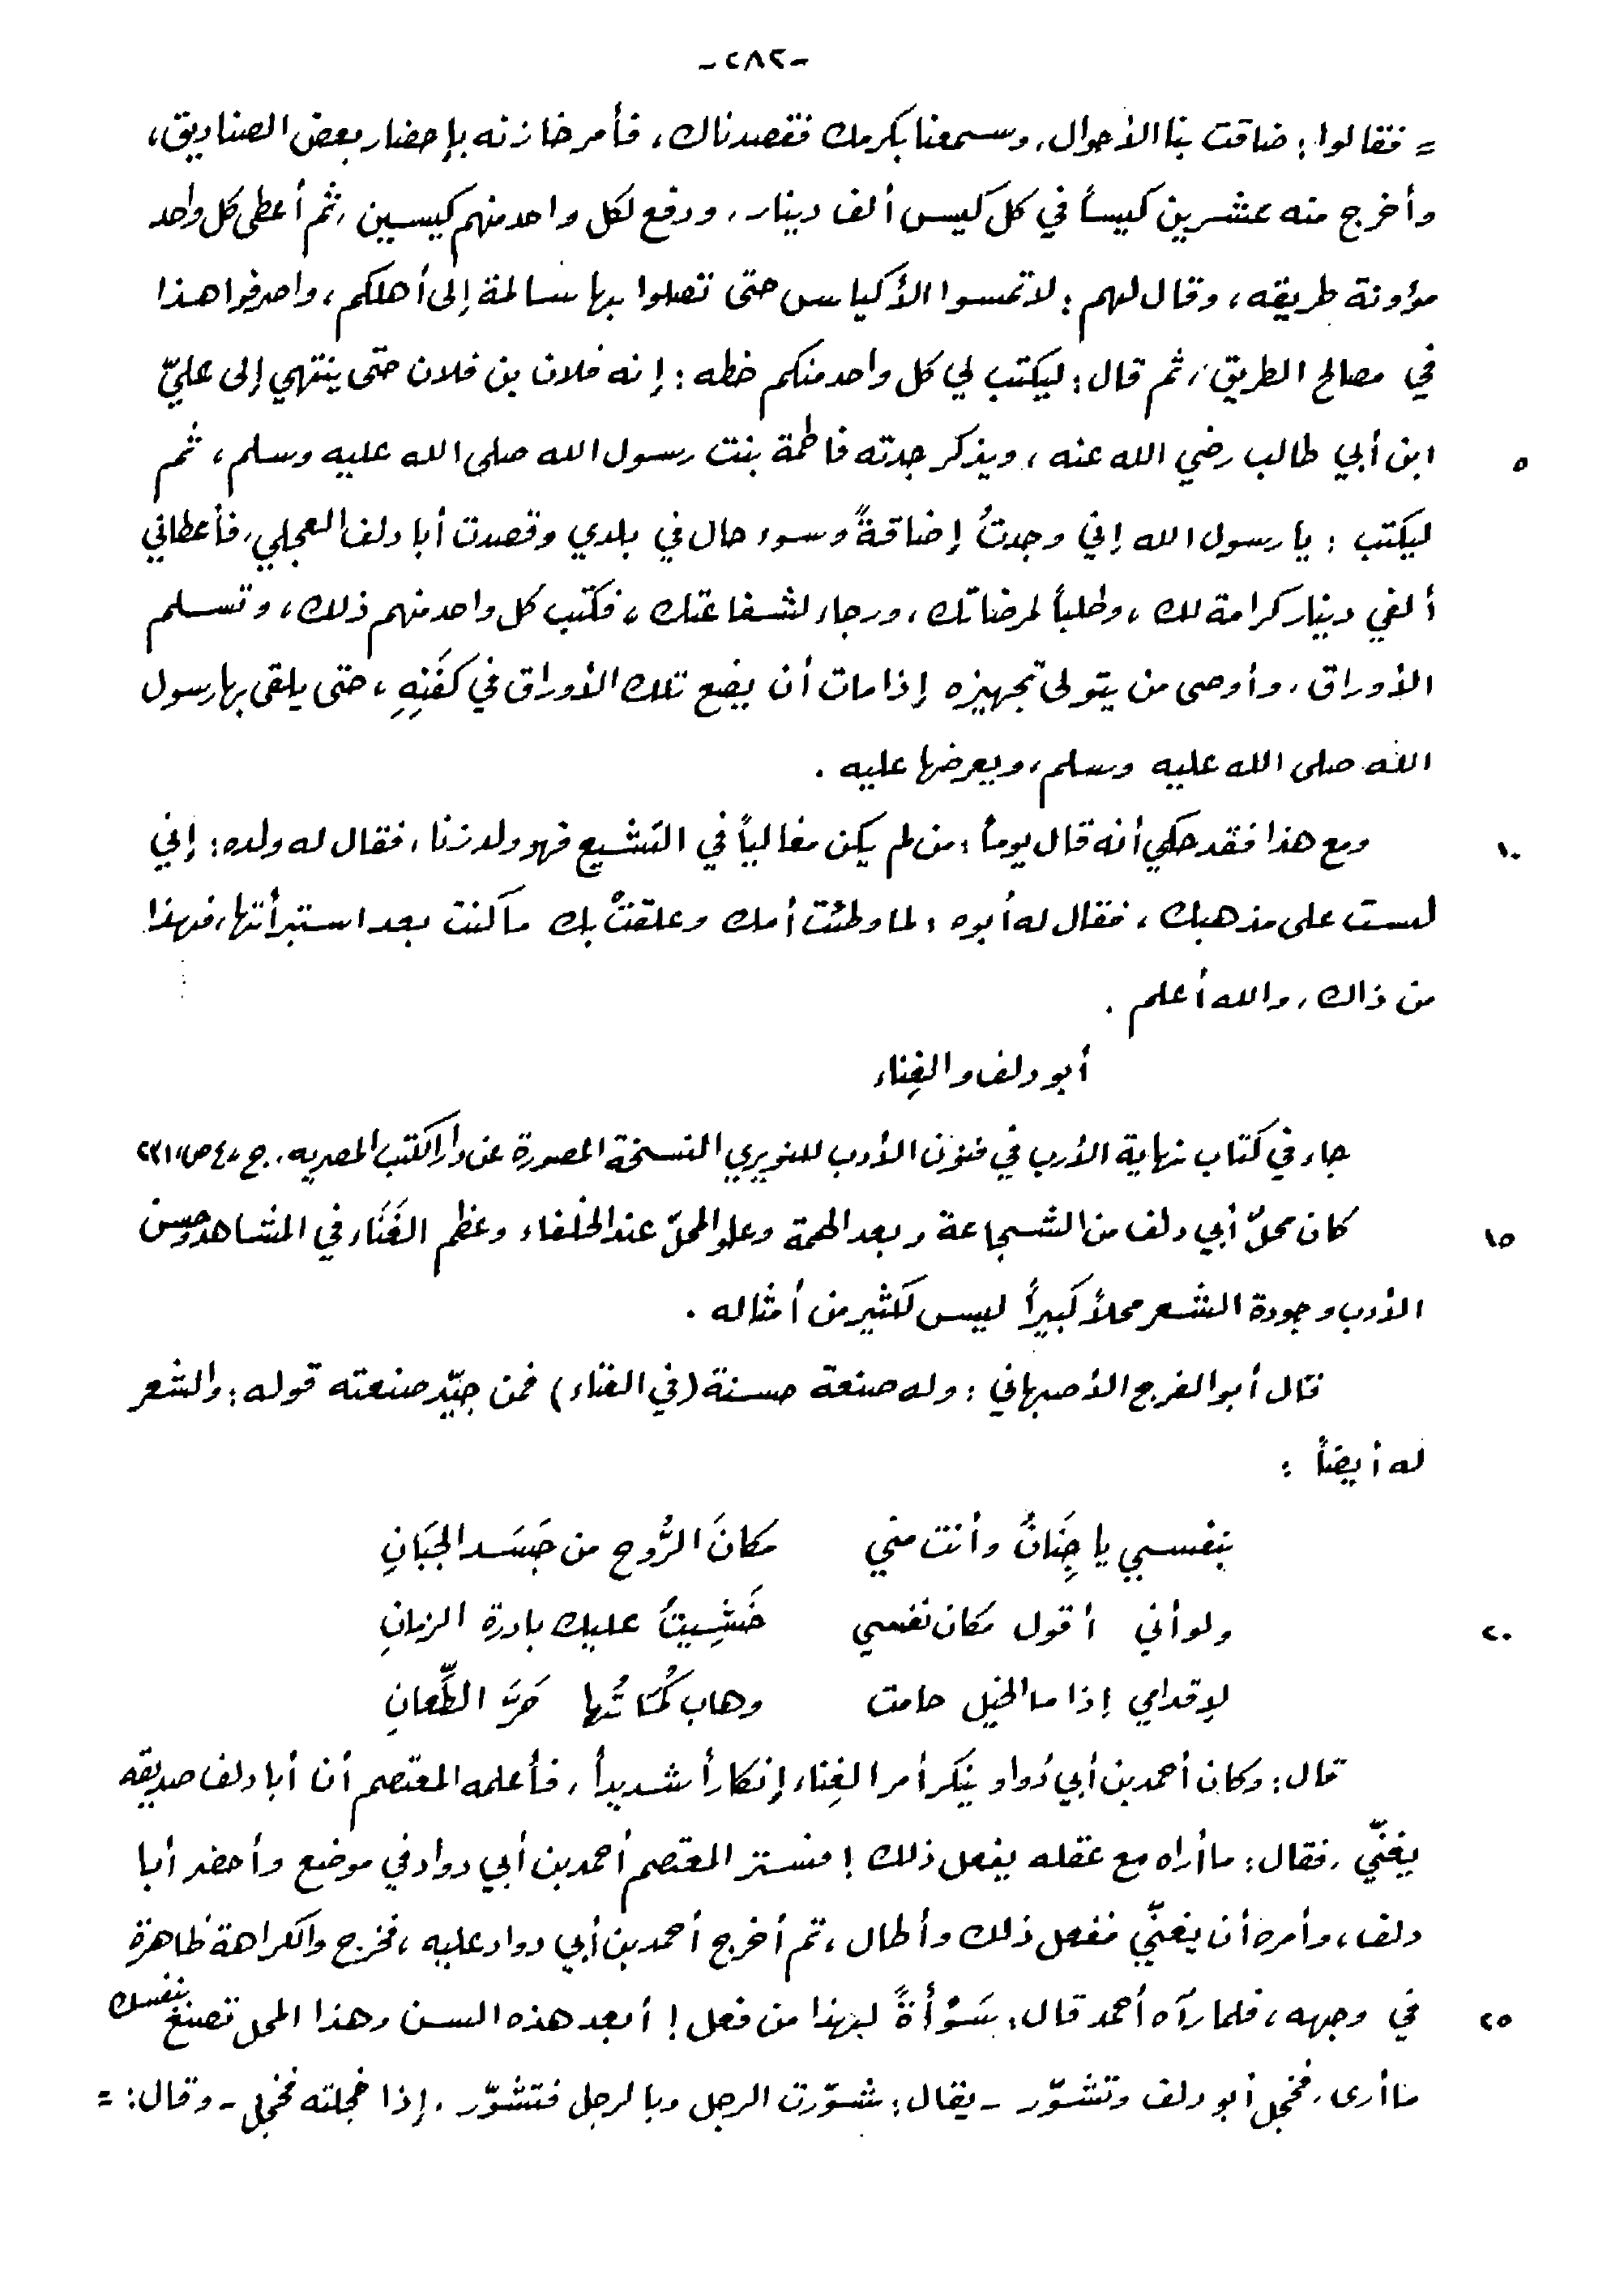 -٢٨٢-
= فقالوا: ضاقت بنا الأحوال، وسمعنا بكرمك فقصدناك، فأمر خازنه بإحضار بعض الصناديق،
وأخرج منه عشرين كيساً في كل كيس ألف دينار، ودفع لكل واحد منهم كيسين، ثم أعطى كل واحد
مؤونة طريقه، وقال لهم: لا تمسوا الأكياس حتى تصلوا بها سالمة إلى أهلكم، واصرفوا هذا
في مصالح الطريق، ثم قال: ليكتب لي كل واحد منكم خطه: إنه فلان بن فلان حتى ينتهي إلى عليّ
٥ ابن أبي طالب رضي الله عنه، ويذكر جدته فاطمة بنت رسول الله صلى الله عليه وسلم، ثم
ليكتب: يا رسول الله إني وجدتُ إضاقةً وسوء حال في بلدي وقصدت أبا دلف العجلي، فأعطاني
ألفي دينار كرامة لك، وطلباً لمرضاتك، ورجاء لشفاعتك، فكتب كل واحد منهم ذلك، وتسلم
الأوراق، وأوصى من يتولى تجهيزه إذا مات أن يضع تلك الأوراق في كفَنِهِ، حتى يلقى بها رسول
الله صلى الله عليه وسلم، ويعرضها عليه.
١٠ ومع هذا فقد حكي أنه قال يوماً: من لم يكن مغالياً في التشيع فهو ولد زنا، فقال له ولده: إني
لست على مذهبك، فقال له أبوه: لما وطئت أمك وعلقتْ بك ما كنت بعد استبرأتها، فهذا
من ذاك، والله أعلم.
أبو دلف والغِناء
جاء في كتاب نهاية الأرب في فنون الأدب للنويري النسخة المصورة عن دار الكتب المصريه. ج ٤، ص ٢٣١
١٥ كان محلّ أبي دلف من الشجاعة وبعد الهمة وعلو المحلّ عند الخلفاء وعظم الغَنَاء في المشاهد وحسن
الأدب وجودة الشعر محلاً كبيراً ليس لكثير من أمثاله.
قال أبو الفرج الأصبهاني: وله صنعة حسنة (في الغناء) فمن جيّد صنعته قوله: والشعر
له أيضاً:
بنفسي يا جِنَانُ وأنت مني مكانَ الرُّوح من جَسَد الجَبَانِ
٢٠ ولو أني أقول مكان نفسي خَشِيتُ عليك بادرة الزمانِ
لإقدامي إذا ما الخيل حامت وهاب كُمَاتُها حَرَّ الطِّعانِ
قال: وكان أحمد بن أبي دُواد ينكر أمر الغِناء إنكاراً شديداً، فأعلمه المعتصم أن أبا دلف صديقه
يغنّي، فقال: ما أراه مع عقله يفعل ذلك! فستر المعتصم أحمد بن أبي دواد في موضع وأحضر أبا
دلف، وأمره أن يغنّي ففعل ذلك وأطال، ثم أخرج أحمد بن أبي دواد عليه، فخرج والكراهة ظاهرة
٢٥ في وجهه، فلما رآه أحمد قال: سَوْأَةً لهذا من فعل! أبعد هذه السن وهذا المحل تصنع بنفسك
ما أرى. فخجل أبو دلف وتشوّر - يقال: شوّرت الرجل وبالرجل فتشوّر. إذا خجلته فخجل - وقال: =